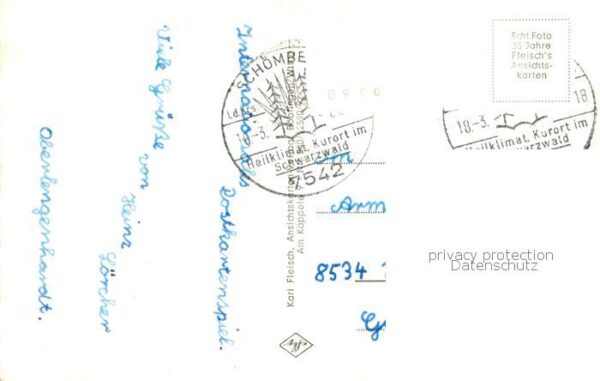 Internationales Postkartenspiel.
Viele Grüße von
Heinz Lörcher
Oberlengenhardt.
SCHÖMBE
18.-3.
Heilklimat. Kurort im
Schwarzwald
7542
Karl Fleisch, Ansichtskarten
Am Käppele
Echt Foto
35 Jahre
Fleisch's
Ansichts-
karten
18
18.-3.
Heilklimat. Kurort im
Schwarzwald
Arm
8534
privacy protection
Datenschutz